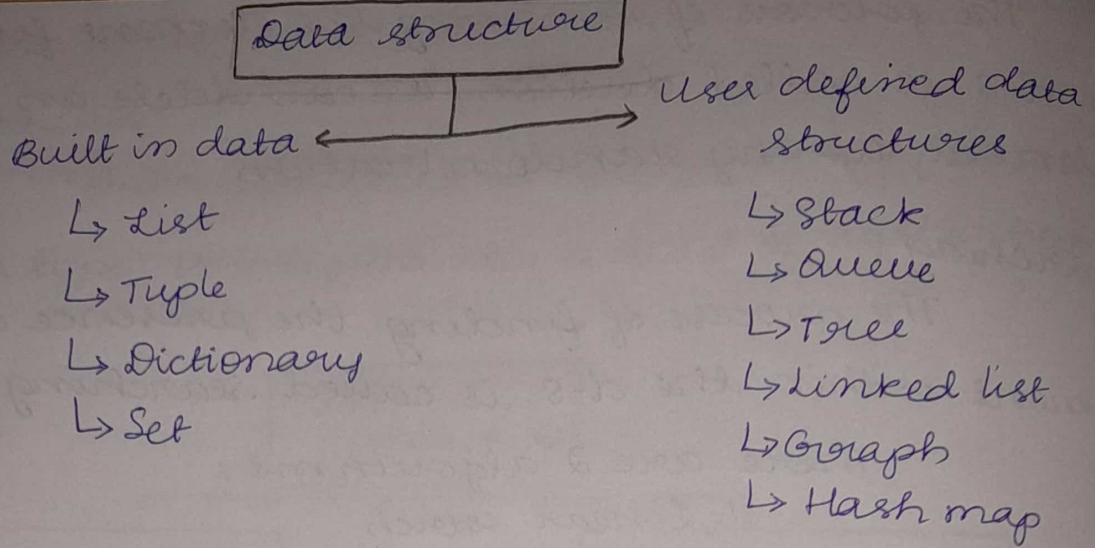 Data structure
Built in data
↳ List
↳ Tuple
↳ Dictionary
↳ Set
User defined data
structures
↳ Stack
↳ Queue
↳ Tree
↳ Linked list
↳ Graph
↳ Hash map